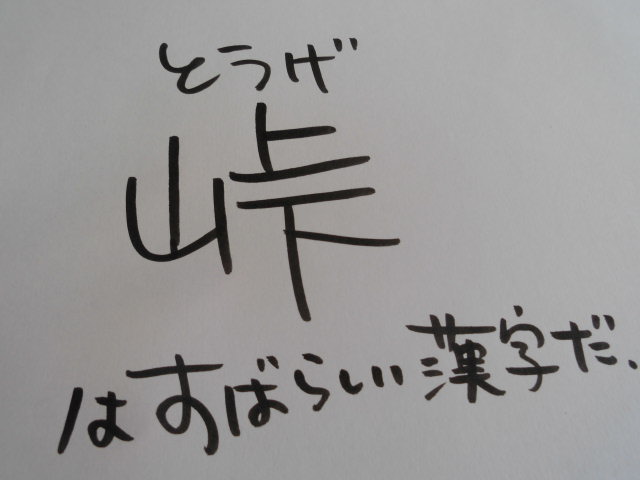 とうげ
峠
はすばらしい漢字だ、